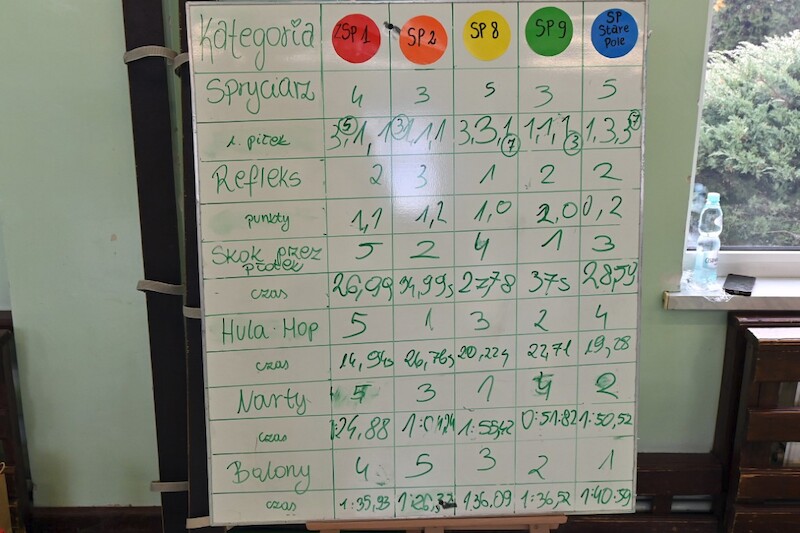 Kategoria ZSP 1 SP 2 SP 8 SP 9 SP Stare Pole
Spryciarz 4 3 5 3 5
piłek 3,1,1 5 1,1,1 3 3,3,1 7 1,1,1 3 1,3,3 7
Refleks 2 3 1 2 2
punkty 1,1 1,2 1,0 2,0 0,2
Skok przez płotek 5 2 4 1 3
czas 26,99 34,99s 37s 28,59
Hula-Hop 5 1 3 2 4
czas 14,94s 26,76s 22,71 19,28
Narty 3 1 2
czas 1:24,88 0:51:82 1:50,52
Balony 4 5 3 2 1
czas 1:35,93 1:36.09 1:36,52 1:40.59